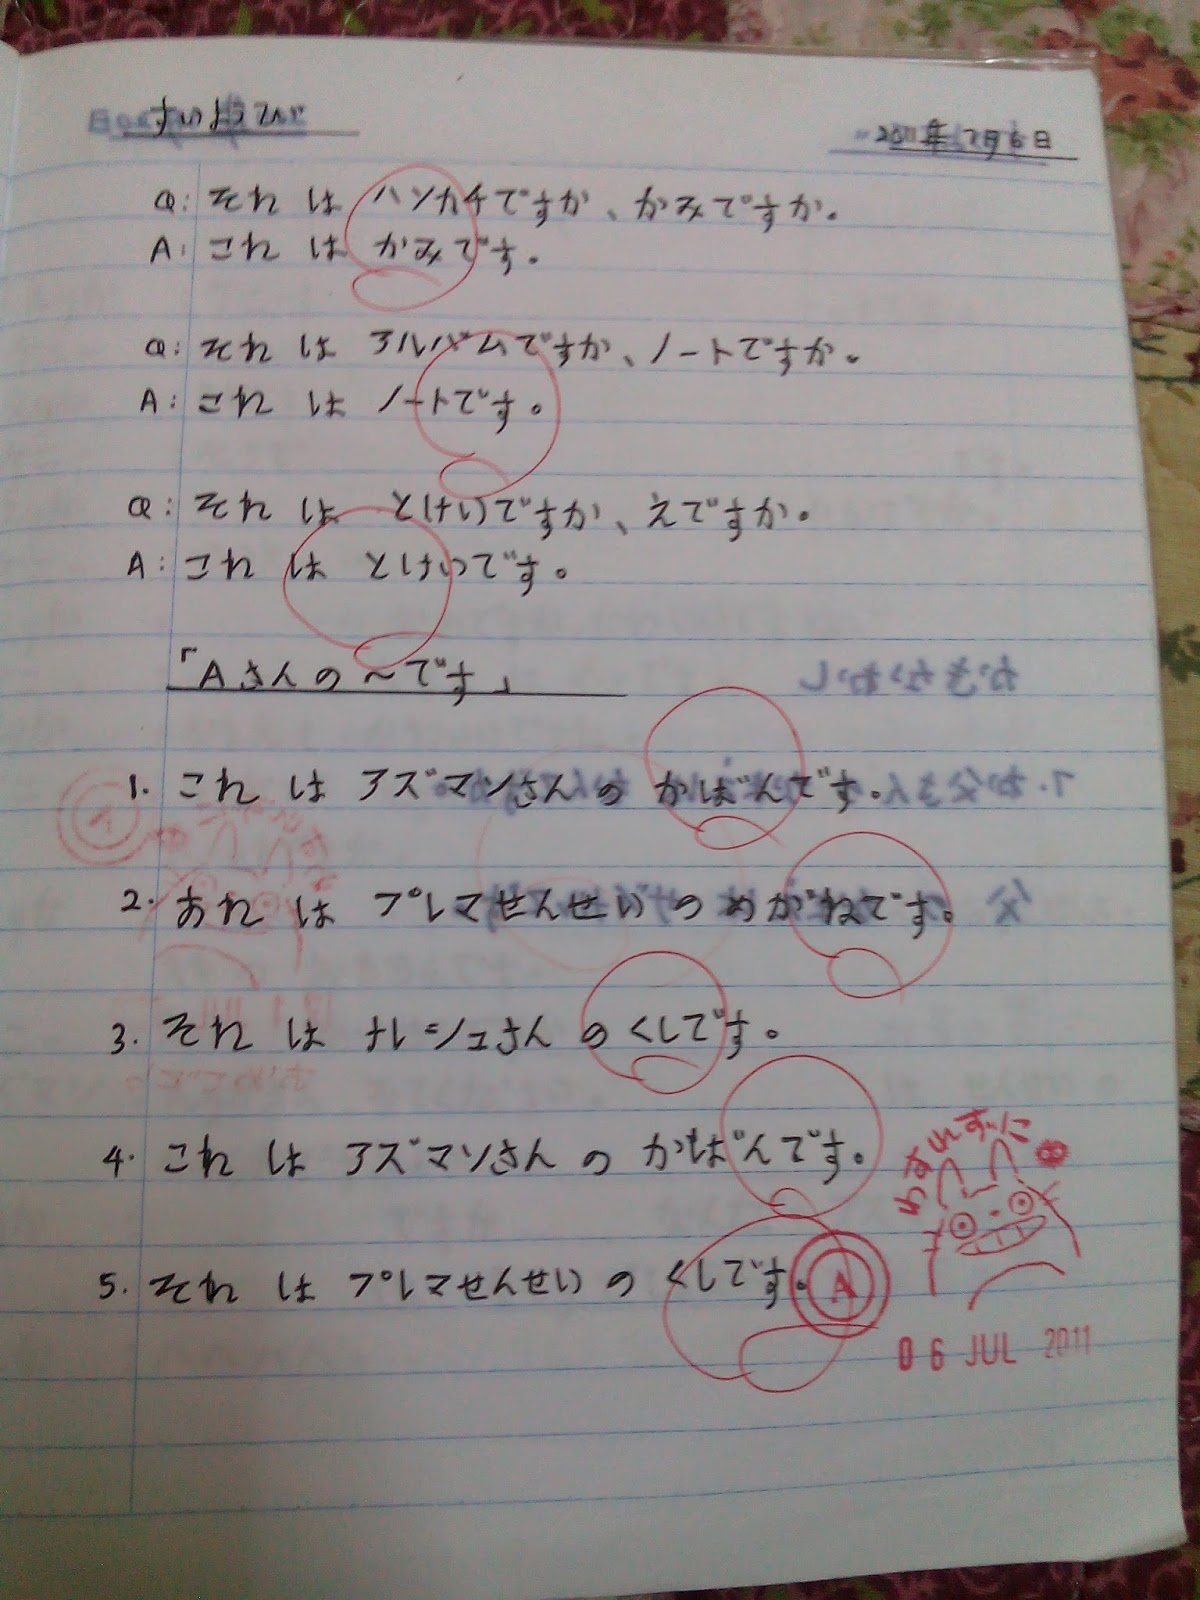 すいようび
2011年7月6日
Q: それ は ハンカチですか、かみですか。
A: これ は かみです。
Q: それ は アルバムですか、ノートですか。
A: これ は ノートです。
Q: それ は とけいですか、えですか。
A: これ は とけいです。
「Aさんの～です」
1. これ は アズマンさんの かばんです。
2. あれ は プレマせんせい の めがねです。
3. それ は ナレシュさん の くしです。
4. これ は アズマンさん の かばんです。
5. それ は プレマせんせい の くしです。
A
わすれずに
06 JUL 2011